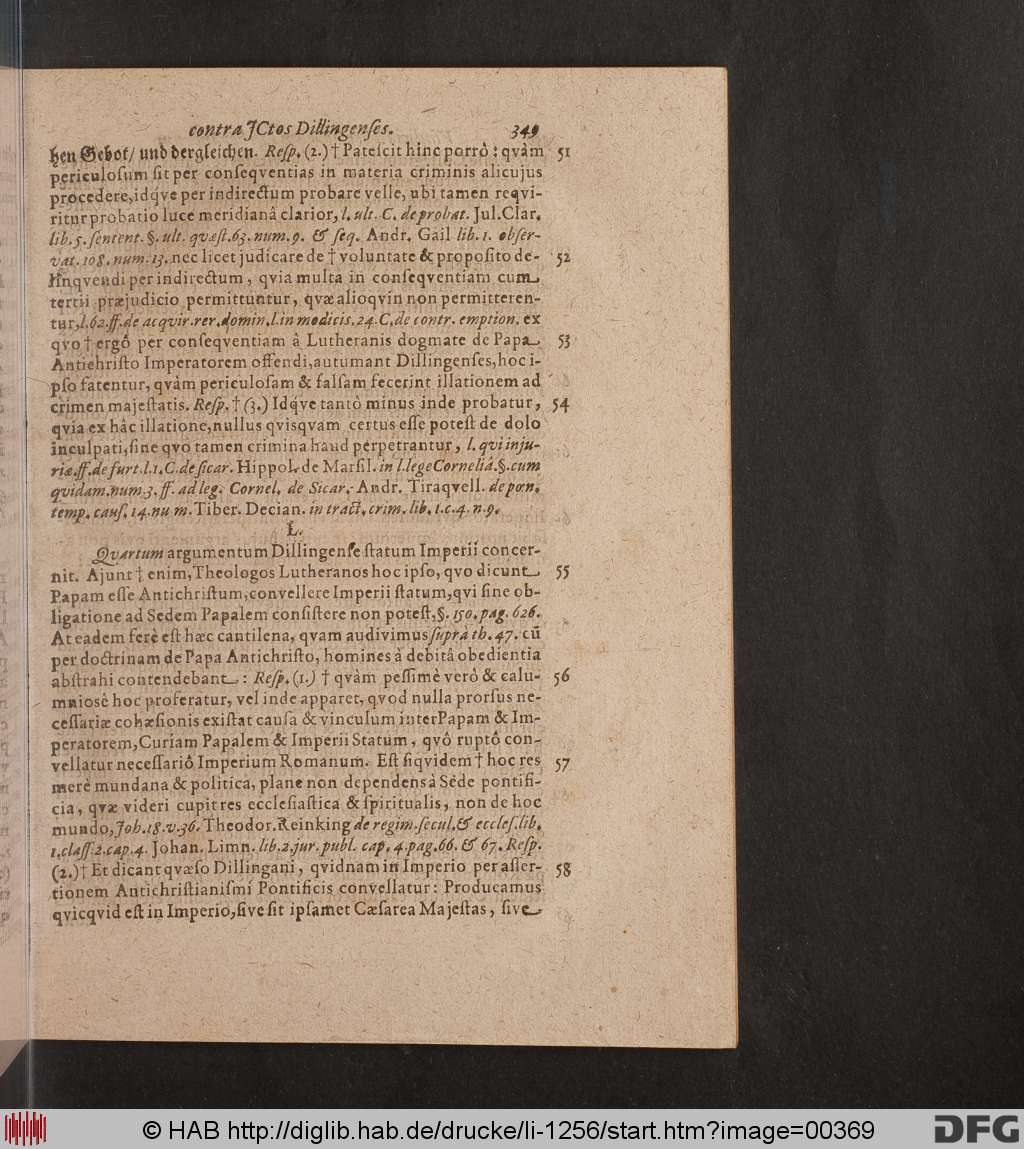 contra JCtos Dillingenſes. 349
hen Gebot/ und dergleichen. Reſp. (2.) † Pateſcit hinc porrô: qvàm 51
periculoſum ſit per conſeqventias in materia criminis alicujus
procedere, idq́ve per indirectum probare velle, ubi tamen reqvi-
ritur probatio luce meridianâ clarior, l. ult. C. de probat. Jul. Clar.
lib. 5. ſentent. §. ult. quæſt. 63. num. 9. & ſeq. Andr. Gail lib. 1. obſer-
vat. 108. num. 13. nec licet judicare de † voluntate & propoſito de- 52
linqvendi per indirectum, qvia multa in conſeqventiam cum
tertii præjudicio permittuntur, qvæ alioqvin non permitteren-
tur, l. 62. ff. de acqvir. rer. domin. l. in modicis. 24. C. de contr. emption. ex
qvo † ergô per conſeqventiam â Lutheranis dogmate de Papa 53
Antichriſto Imperatorem offendi, autumant Dillingenſes, hoc i-
pſo fatentur, qvàm periculoſam & falſam fecerint illationem ad
crimen majeſtatis. Reſp. † (3.) Idq́ve tantò minus inde probatur, 54
qvia ex hâc illatione, nullus qvisqvam certus eſſe poteſt de dolo
inculpati, ſine qvo tamen crimina haud perpetrantur, l. qvi inju-
riæ. ff. de furt. l. 1. C. de ſicar. Hippol. de Marſil. in l. lege Corneliâ. §. cum
qvidam. num. 3. ff. ad leg. Cornel. de Sicar. Andr. Tiraqvell. de pœn.
temp. cauſ. 14. num. Tiber. Decian. in tract. crim. lib. 1. c. 4. n. 9.
L.
Qvartum argumentum Dillingenſe ſtatum Imperii concer-
nit. Ajunt † enim, Theologos Lutheranos hoc ipſo, qvo dicunt 55
Papam eſſe Antichriſtum, convellere Imperii ſtatum, qvi ſine ob-
ligatione ad Sedem Papalem conſiſtere non poteſt, §. 150. pag. 626.
At eadem ferè eſt hæc cantilena, qvam audivimus ſuprà th. 47. cũ
per doctrinam de Papa Antichriſto, homines à debitâ obedientia
abſtrahi contendebant: Reſp. (1.) † qvàm peſſimè verô & calu- 56
mniosè hoc proferatur, vel inde apparet, qvod nulla prorſus ne-
ceſſariæ cohæſionis exiſtat cauſa & vinculum inter Papam & Im-
peratorem, Curiam Papalem & Imperii Statum, qvô ruptô con-
vellatur neceſſariô Imperium Romanum. Eſt ſiqvidem † hoc res 57
merè mundana & politica, plane non dependens à Sede pontifi-
cia, qvæ videri cupit res eccleſiaſtica & ſpiritualis, non de hoc
mundo, Joh. 18. v. 36. Theodor. Reinking de regim. ſecul. & eccleſ. lib.
1. claſſ. 2. cap. 4. Johan. Limn. lib. 2. jur. publ. cap. 4. pag. 66. & 67. Reſp.
(2.) † Et dicant qvæſo Dillingani, qvidnam in Imperio per aſſer- 58
tionem Antichriſtianiſmi Pontificis convellatur: Producamus
qvicqvid eſt in Imperio, ſive ſit ipſamet Cæſarea Majeſtas, ſive
© HAB http://diglib.hab.de/drucke/li-1256/start.htm?image=00369
DFG